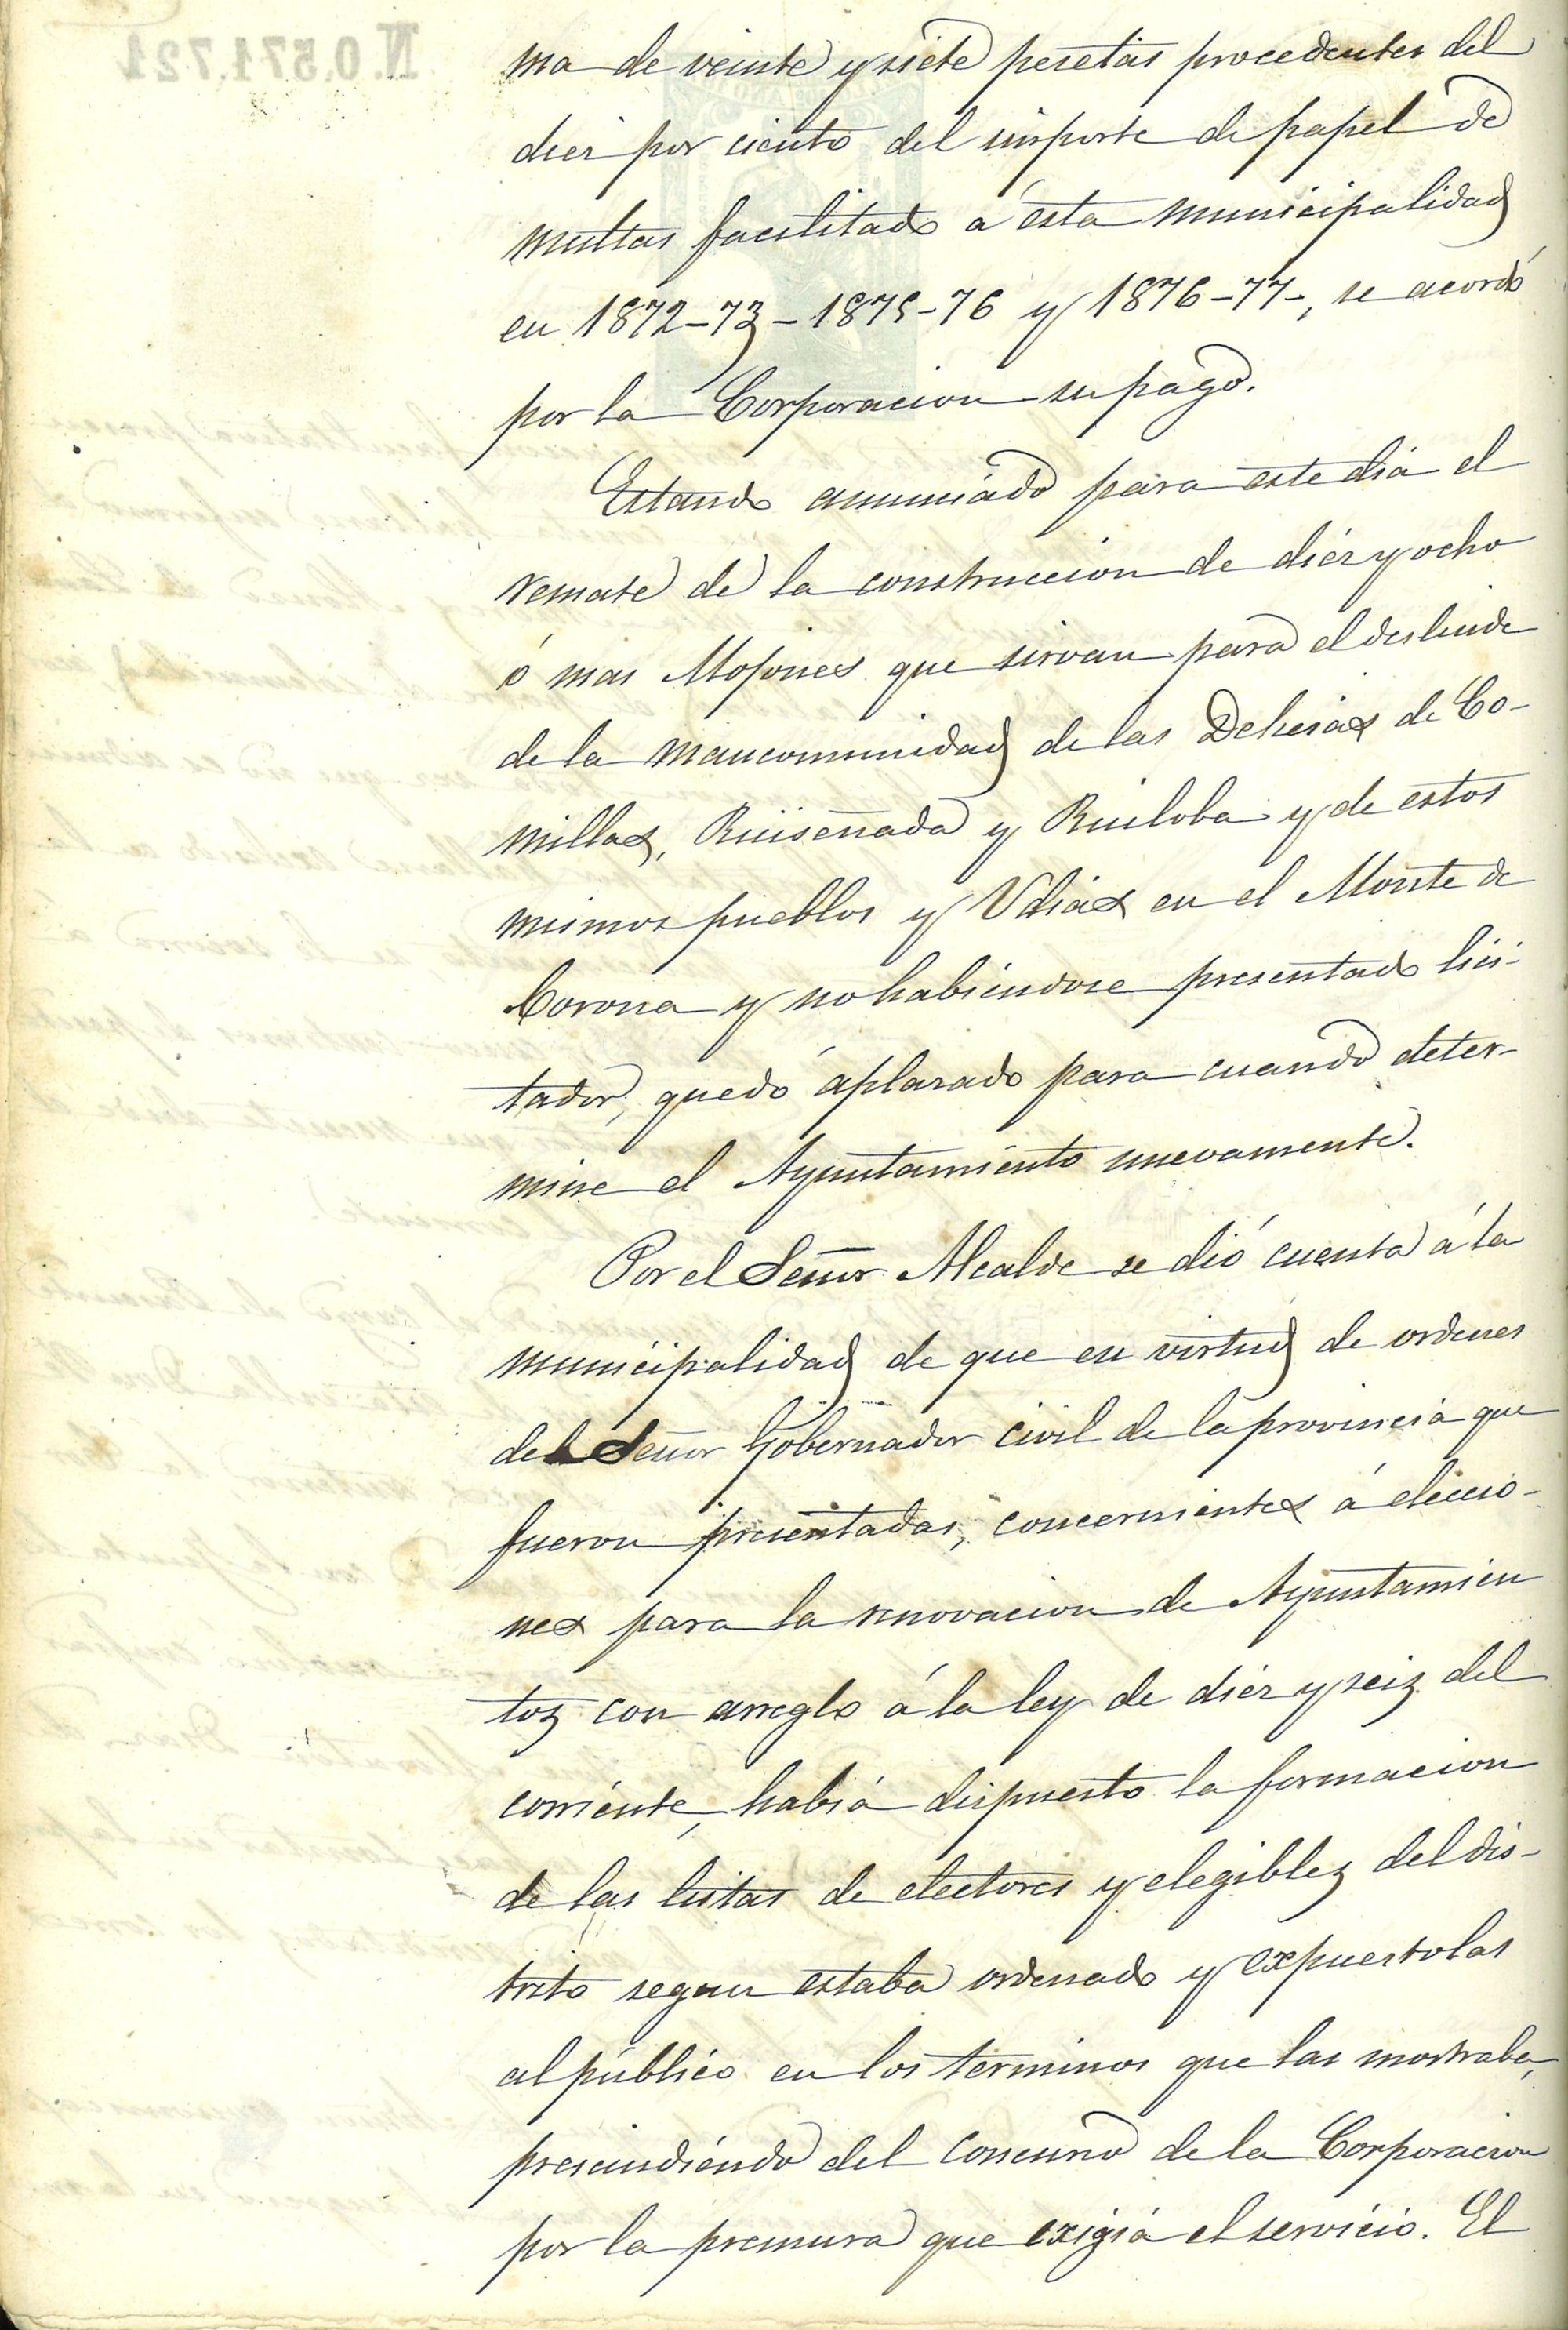 N.0.571.721
ma de veinte y siete pesetas procedentes del
diez por ciento del importe de papel de
multas facilitado á ésta municipalidad
en 1872-73-1875-76 y 1876-77-, se acordó
por la Corporacion su pago.
Estando anunciado para este dia el
remate de la construccion de diez y ocho
ó mas Mojones que sirvan para el deslinde
de la mancomunidad de las Dehesas de Co-
millas, Ruiseñada y Ruiloba y de estos
mismos pueblos y Udias en el Monte de
Corona y no habiendose presentado lici-
tador, quedó aplazado para cuando deter-
mine el Ayuntamiento nuevamente.
Por el Señor Alcalde se dió cuenta á la
municipalidad de que en virtud de ordenes
del Señor Gobernador civil de la provincia que
fueron presentadas, concernientes á eleccio-
nes para la renovacion de Ayuntamien
tos con arreglo á la ley de diez y seis del
corriente, habia dispuesto la formacion
de las listas de electores y elegibles del dis-
trito segun estaba ordenado y expuestolas
al público en los terminos que las mostraba,
prescindiendo del concurso de la Corporacion
por la premura que exigia el servicio. El